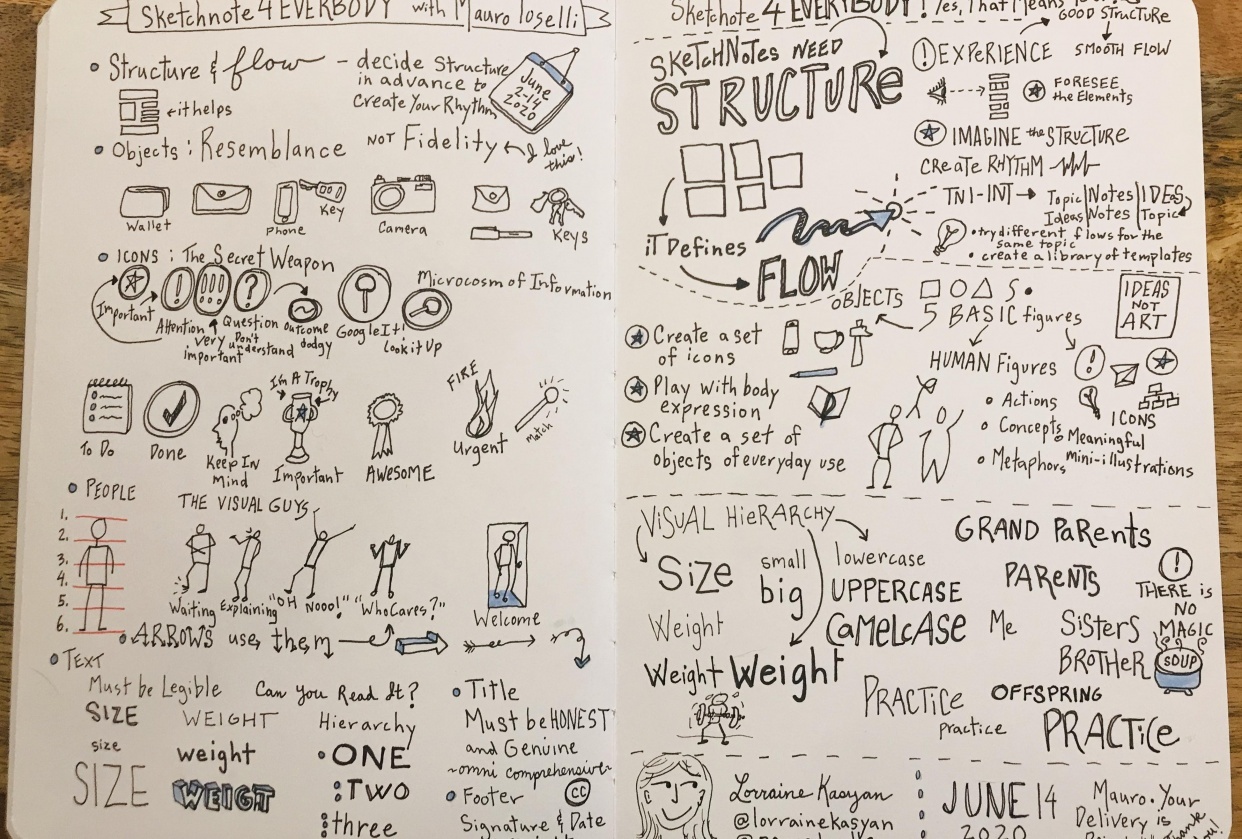 Sketchnote 4 EVERYBODY with Mauro Toselli
Structure & flow - decide Structure
in advance to
Create Your Rhythm
June
2-14
2020
←it helps
Objects: Resemblance NOT Fidelity
I love
this!
Wallet
Phone
Key
Camera
Keys
ICONS: The Secret Weapon
Microcosm of Information
Important
Attention
Very
important
Question
Don't
understand
Outcome
dodgy
Google It!
Look it Up
I'm A Trophy
FIRE
To Do
Done
Keep In
Mind
Important
AWESOME
Urgent
Match
PEOPLE
THE VISUAL GUYS
1.
2.
3.
4.
5.
6.
Waiting
Explaining
"OH Nooo!"
"Who Cares?"
Welcome
ARROWS use them
TEXT
Must be Legible Can you Read It?
SIZE WEIGHT Hierarchy
size weight ONE
SIZE WEIGT TWO
three
Title
Must be HONEST
and Genuine
~omni comprehensive~
Footer CC
Signature & Date
Sketchote 4 EVERYBODY! Yes, That Means
SKETCHNOTES NEED
STRUCTURE
iT Defines
FLOW
GOOD STRUCTURE
! EXPERIENCE SMOOTH FLOW
FORESEE
the Elements
IMAGINE the STRUCTURE
CREATE RHYTHM
TNI-INT → Topic|Notes|IDEAS
Ideas|Notes|Topic
• try different flows for the
same topic
• create a library of templates
OBJECTS
5 BASIC figures
IDEAS
NOT
ART
Create a set
of icons
Play with body
expression
Create a set of
objects of everyday use
HUMAN Figures
• Actions
• Concepts
• Metaphors
ICONS
Meaningful
Mini-illustrations
VISUAL HIERARCHY
Size small
big
Weight
Weight Weight
lowercase
UPPERCASE
CaMELcASE
GRAND PARENTS
PARENTS
Me Sisters
BROTHER
OFFSPRING
THERE is
NO
MAGIC
SOUP
PRACTICE
practice
PRACTICE
Lorraine Kasyan
@lorrainekasyan
JUNE 14
2020
Mauro. Your
Delivery is